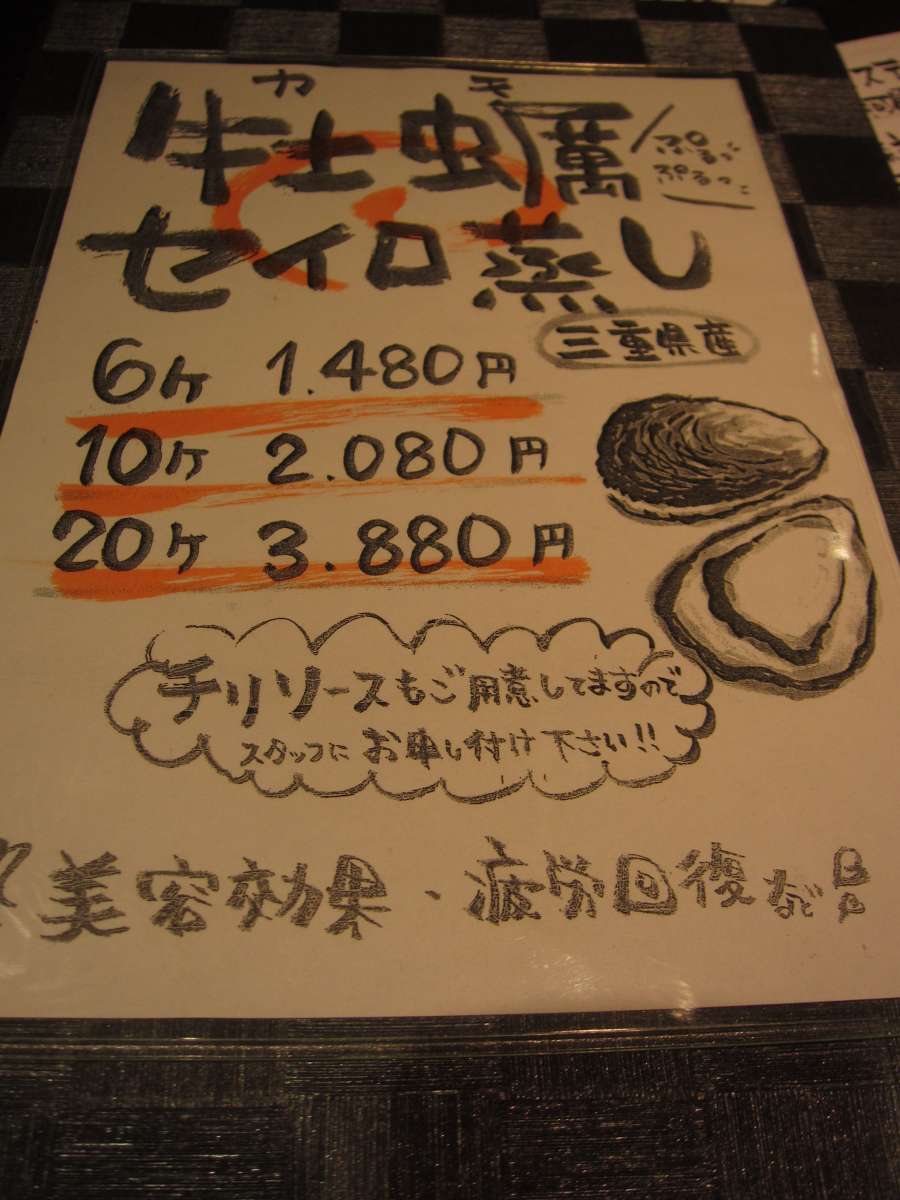 カキ
牡蛎
ぷるっ
ぷるっこ
セイロ蒸し
三重県産
6ヶ 1.480円
10ヶ 2.080円
20ヶ 3.880円
チリソースもご用意してますので
スタッフにお申し付け下さい!!
美容効果・疲労回復など